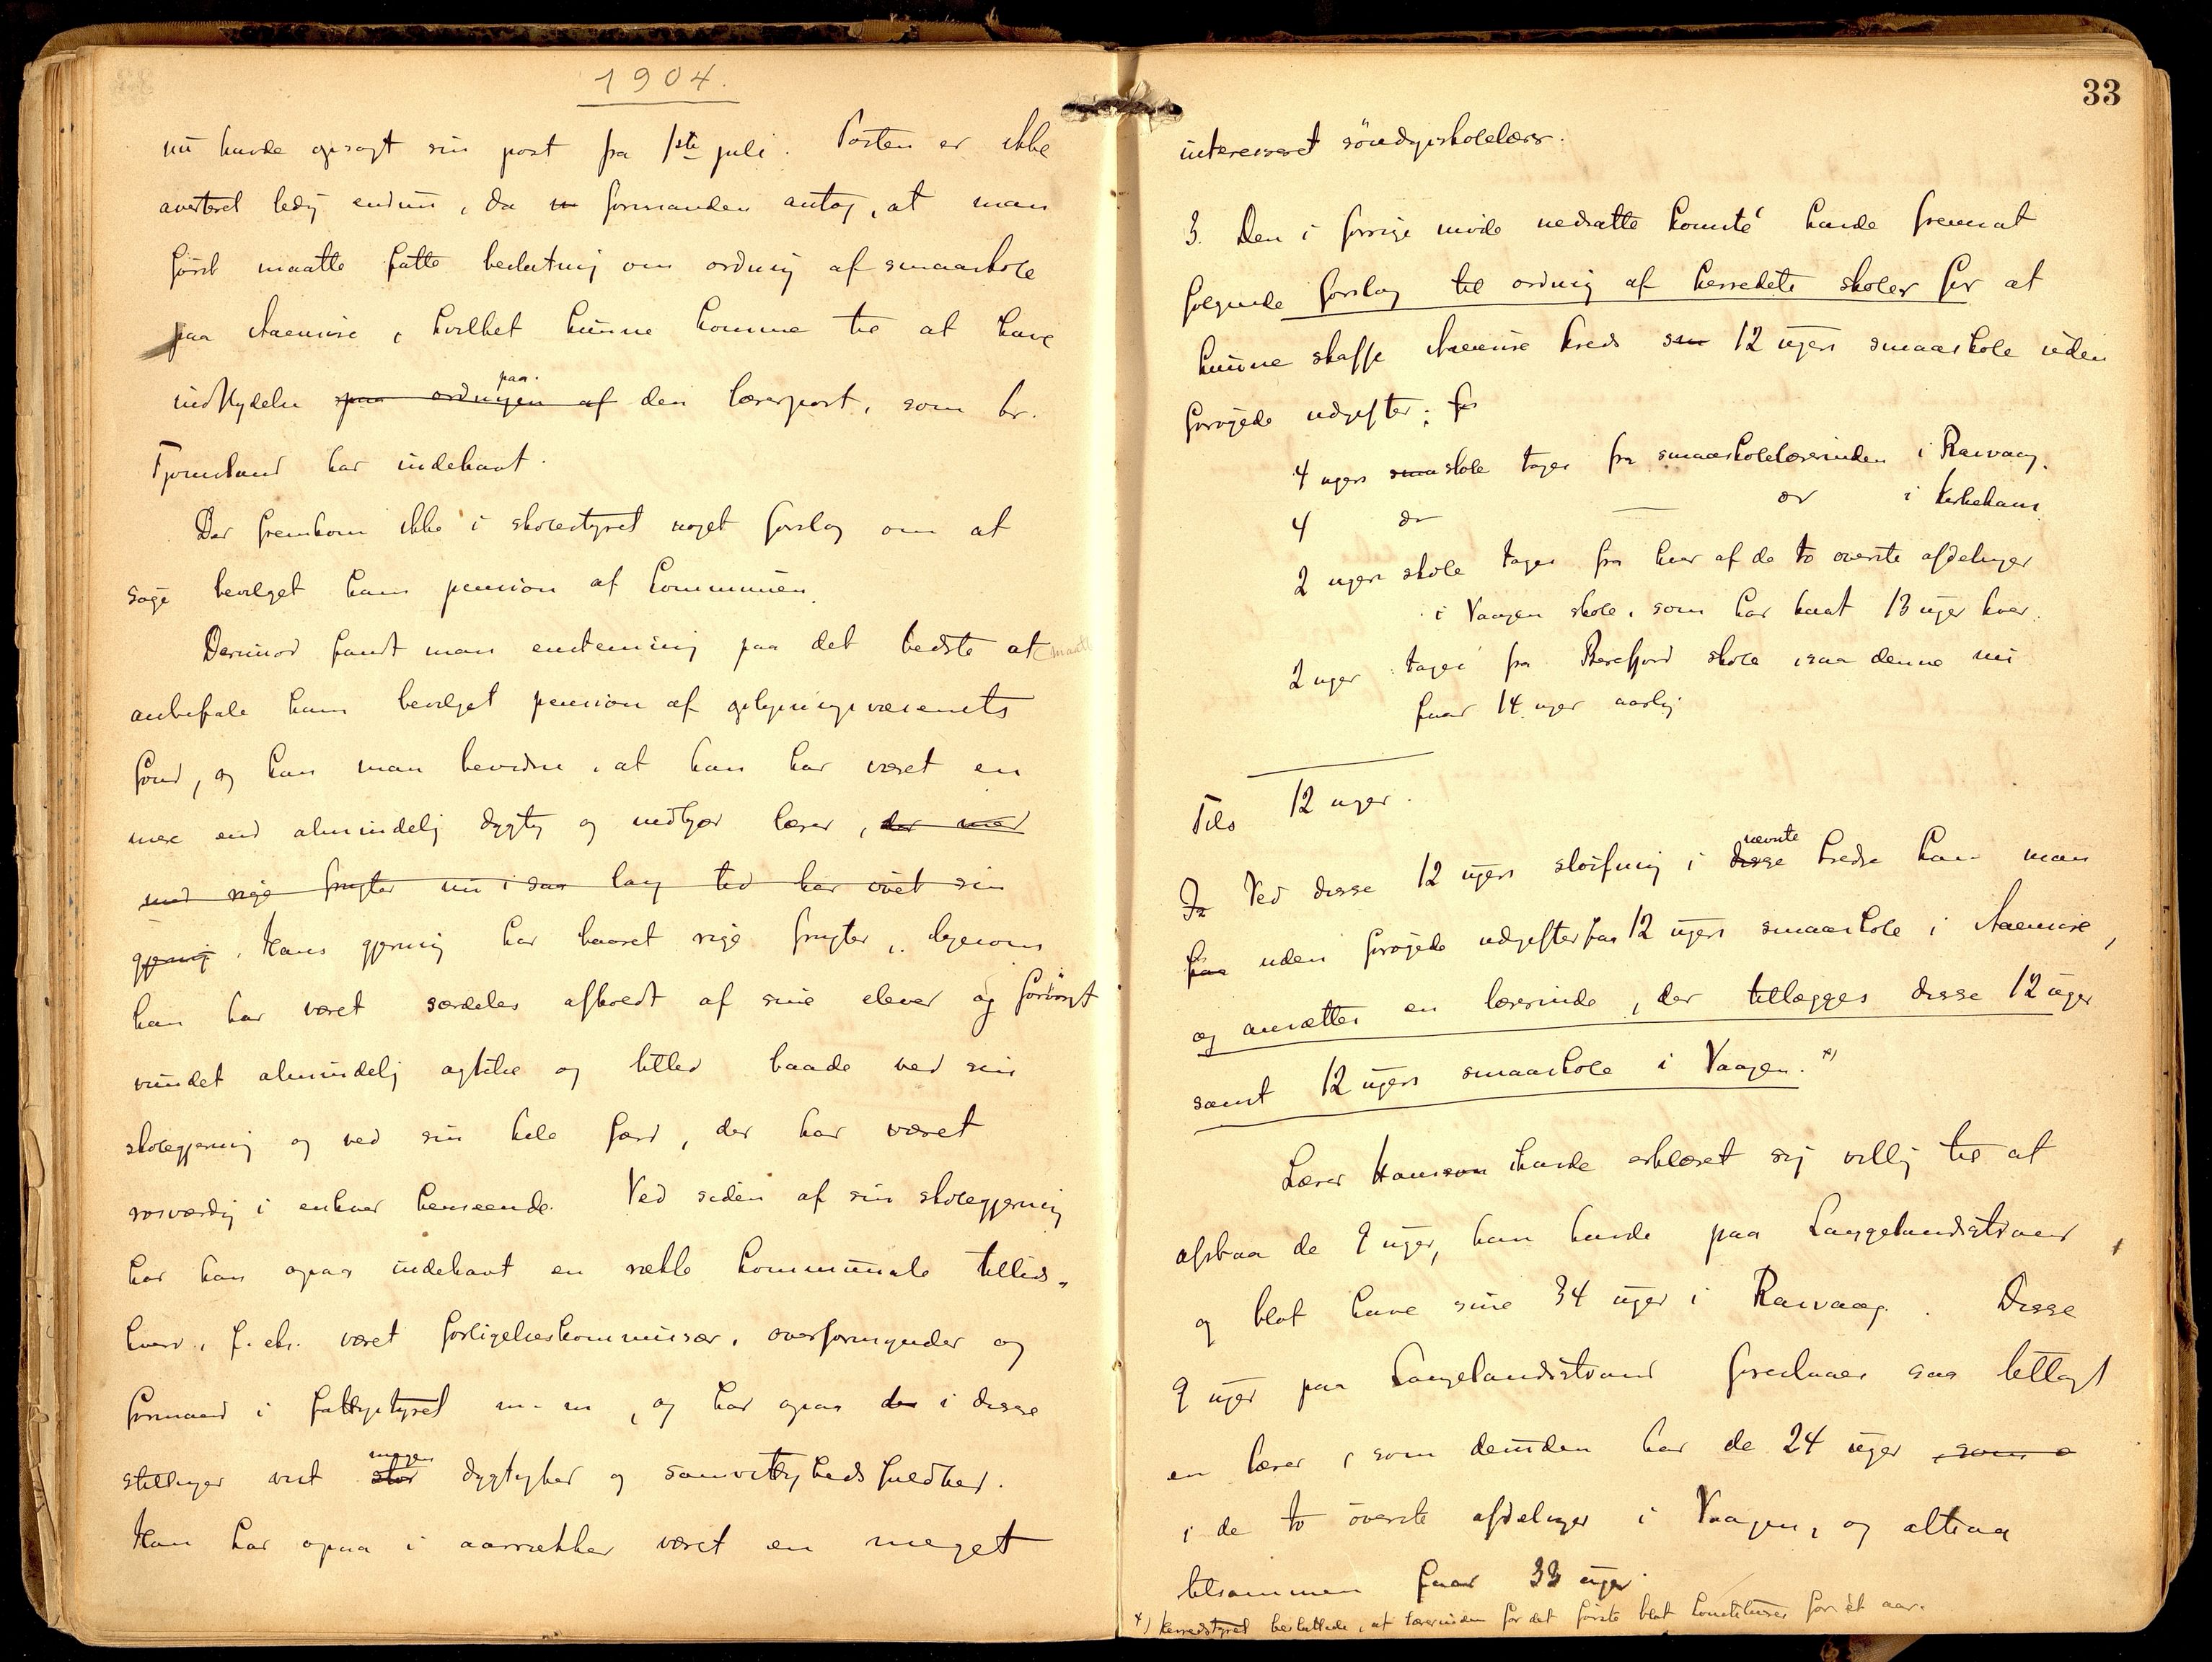 1904.
nu havde opsagt sin post fra 1ste juli. Posten er ikke
averteret ledig endnu, da formanden antog, at man
først maatte fatte beslutning om ordning af smaaskole
paa Aaenuse, hvilket kunne komme til at have
indflydelse paa ordningen af paa den lærerpost, som hr.
Fjornland har indehavt.
Der fremkom ikke i skolestyret noget forslag om at
søge bevilget ham pension af kommunen.
Derimod fandt man enstemmig paa det bedste at maatte
anbefale ham bevilget pension af oplysningsvæsenets
fond, og kan man bevidne, at han har været en
mere end almindelig dygtig og nidkjær lærer, der med
med rige frugter nu i saa lang tid har øvet sin
gjerning. Hans gjerning har baaret rige frugter, ligesom
han har været særdeles afholdt af sine elever og forøvrigt
vundet almindelig agtelse og tillid baade ved sin
skolegjerning og ved sin hele færd, der har været
rosværdig i enhver henseende. Ved siden af sin skolegjerning
har han ogsaa indehavt en række kommunale tillids-
hverv, f. eks. været forligelseskommissær, overformynder og
formand i fattigstyret m. m, og har ogsaa der i disse
stillinger vist stor megen dygtighed og samvittighedsfuldhed.
Han har ogsaa i aarrækker været en meget
33
interesseret søndagsskolelærer.
3. Den i forrige møde nedsatte komité havde fremsat
følgende forslag til ordning af herredets skoler for at
kunne skaffe Aaenuse kreds sin 12 ugers smaaskole uden
forøgede udgifter: for
4 ugers smaaskole tages fra smaaskolelærerinden i Rasvaag.
4 do — do i Kirkehavn
2 ugers skole tages fra hver af de to øverste afdelinger
i Vaagen skole, som har havt 13 uger hver.
2 uger tages fra Beresfjord skole, saa denne nu
faar 14 uger aarlig
Tils 12 uger.
Ved disse 12 ugers sløifning i disse nævnte kredse kan man
faa uden forøgede udgifter faa 12 ugers smaaskole i Aaenuse,
og ansættes en lærerinde, der tillægges disse 12 uger
samt 12 ugers smaaskole i Vaagen. *)
Lærer Hansson havde erklæret sig villig til at
afstaa de 9 uger, han havde paa Langelandsstrand,
og blot have sine 34 uger i Rasvaag. Disse
9 uger paa Langelandsstrand foreslaaes saa tillagt
en lærer, som desuden har de 24 uger, som
i de to øverste afdelinger i Vaagen, og altsaa
tilsammen faar 33 uger.
*) Herredstyret besluttede, at lærerinden for det første blot konstitueres for ét aar.